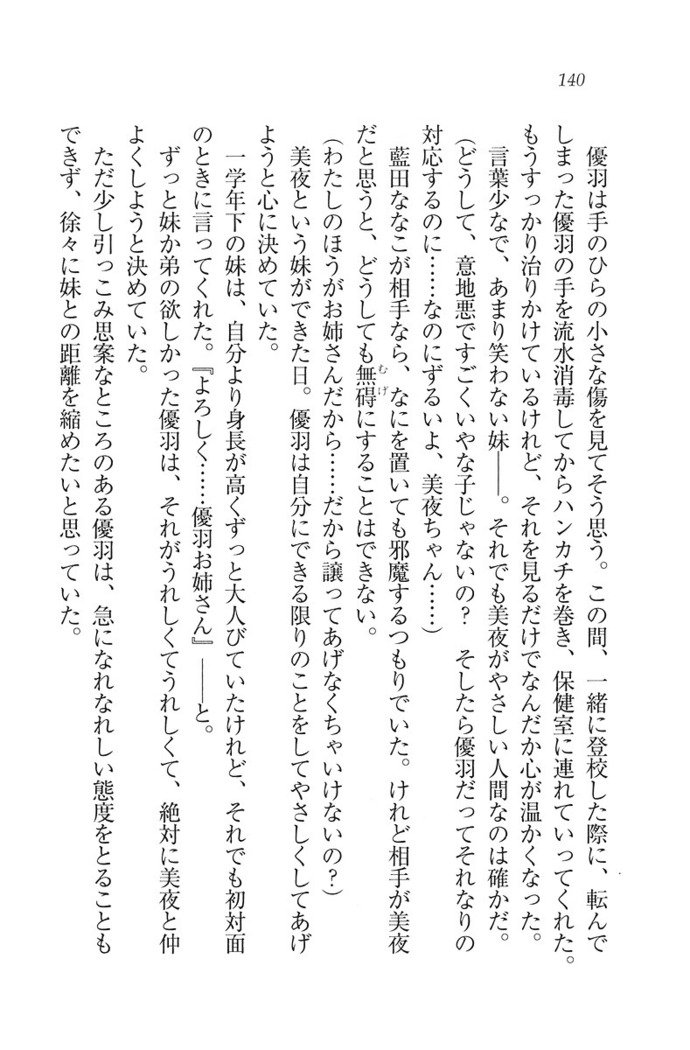 140
優羽は手のひらの小さな傷を見てそう思う。この間、一緒に登校した際に、転んで
しまった優羽の手を流水消毒してからハンカチを巻き、保健室に連れていってくれた。
もうすっかり治りかけているけれど、それを見るだけでなんだか心が温かくなった。
言葉少なで、あまり笑わない妹――。それでも美夜がやさしい人間なのは確かだ。
(どうして、意地悪ですごくいやな子じゃないの？　そしたら優羽だってそれなりの
対応するのに……なのにずるいよ、美夜ちゃん……)
藍田ななこが相手なら、なにを置いても邪魔するつもりでいた。けれど相手が美夜
だと思うと、どうしても無碍にすることはできない。
(わたしのほうがお姉さんだから……だから譲ってあげなくちゃいけないの？)
美夜という妹ができた日。優羽は自分にできる限りのことをしてやさしくしてあげ
ようと心に決めていた。
一学年下の妹は、自分より身長が高くずっと大人びていたけれど、それでも初対面
のときに言ってくれた。『よろしく……優羽お姉さん』――と。
ずっと妹か弟の欲しかった優羽は、それがうれしくてうれしくて、絶対に美夜と仲
よくしようと決めていた。
ただ少し引っこみ思案なところのある優羽は、急になれなれしい態度をとることも
できず、徐々に妹との距離を縮めたいと思っていた。